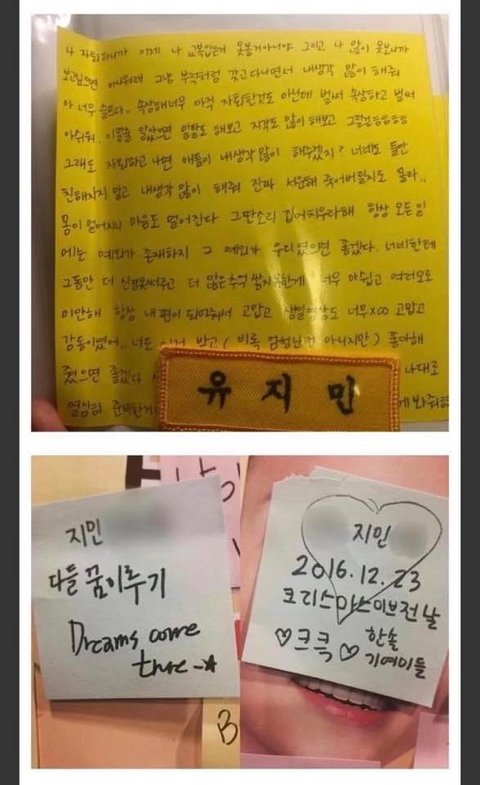 나 자퇴하니까 이제 나 교복입은거 못볼거아니야 그리고 나 많이 못보니까
보고싶으면 아니더래 그냥 부적처럼 갖고다니면서 내생각 많이 해줘
아 너무 슬프다.. 속상해너무 아직 자퇴한것도 아닌데 벌써 속상하고 벌써
아쉬워. 이럴줄 알았으면 일탈도 해보고 지각도 많이 해보고 그럴걸
그래도 자퇴하고 나면 애들이 내생각 많이 해주겠지? 너네도 둘만
친해지지 말고 내생각 많이 해줘 진짜 서운해 죽어버릴지도 몰라..
몸이 멀어지니 마음도 멀어진다 그딴소리 집어치우라해 항상 모든일
에는 예외가 존재하지 그 예외가 우리였으면 좋겠다. 너네한테
그동안 더 신경못써주고 더 많은추억 쌓지못한게 너무 아쉽고 여러모로
미안해 항상 내편이 되어줘서 고맙고 생일영상도 너무xoo 고맙고
감동이였어.. 너도 이거 받고 (비록 엄청난건 아니지만) 좋아해
줬으면 좋겠다 나대로
열심히 준비한거 게 봐줘
유지민
지민
다들 꿈이루기
Dreams come
true
B
지민
2016.12.23
크리스마스이브전날
♡크큭♡ 한솔
기여미들